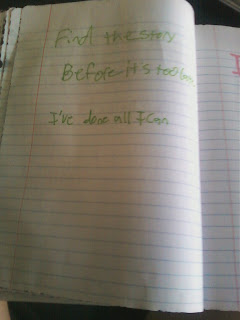 Find the story
Before it's too late
I've done all I can
I